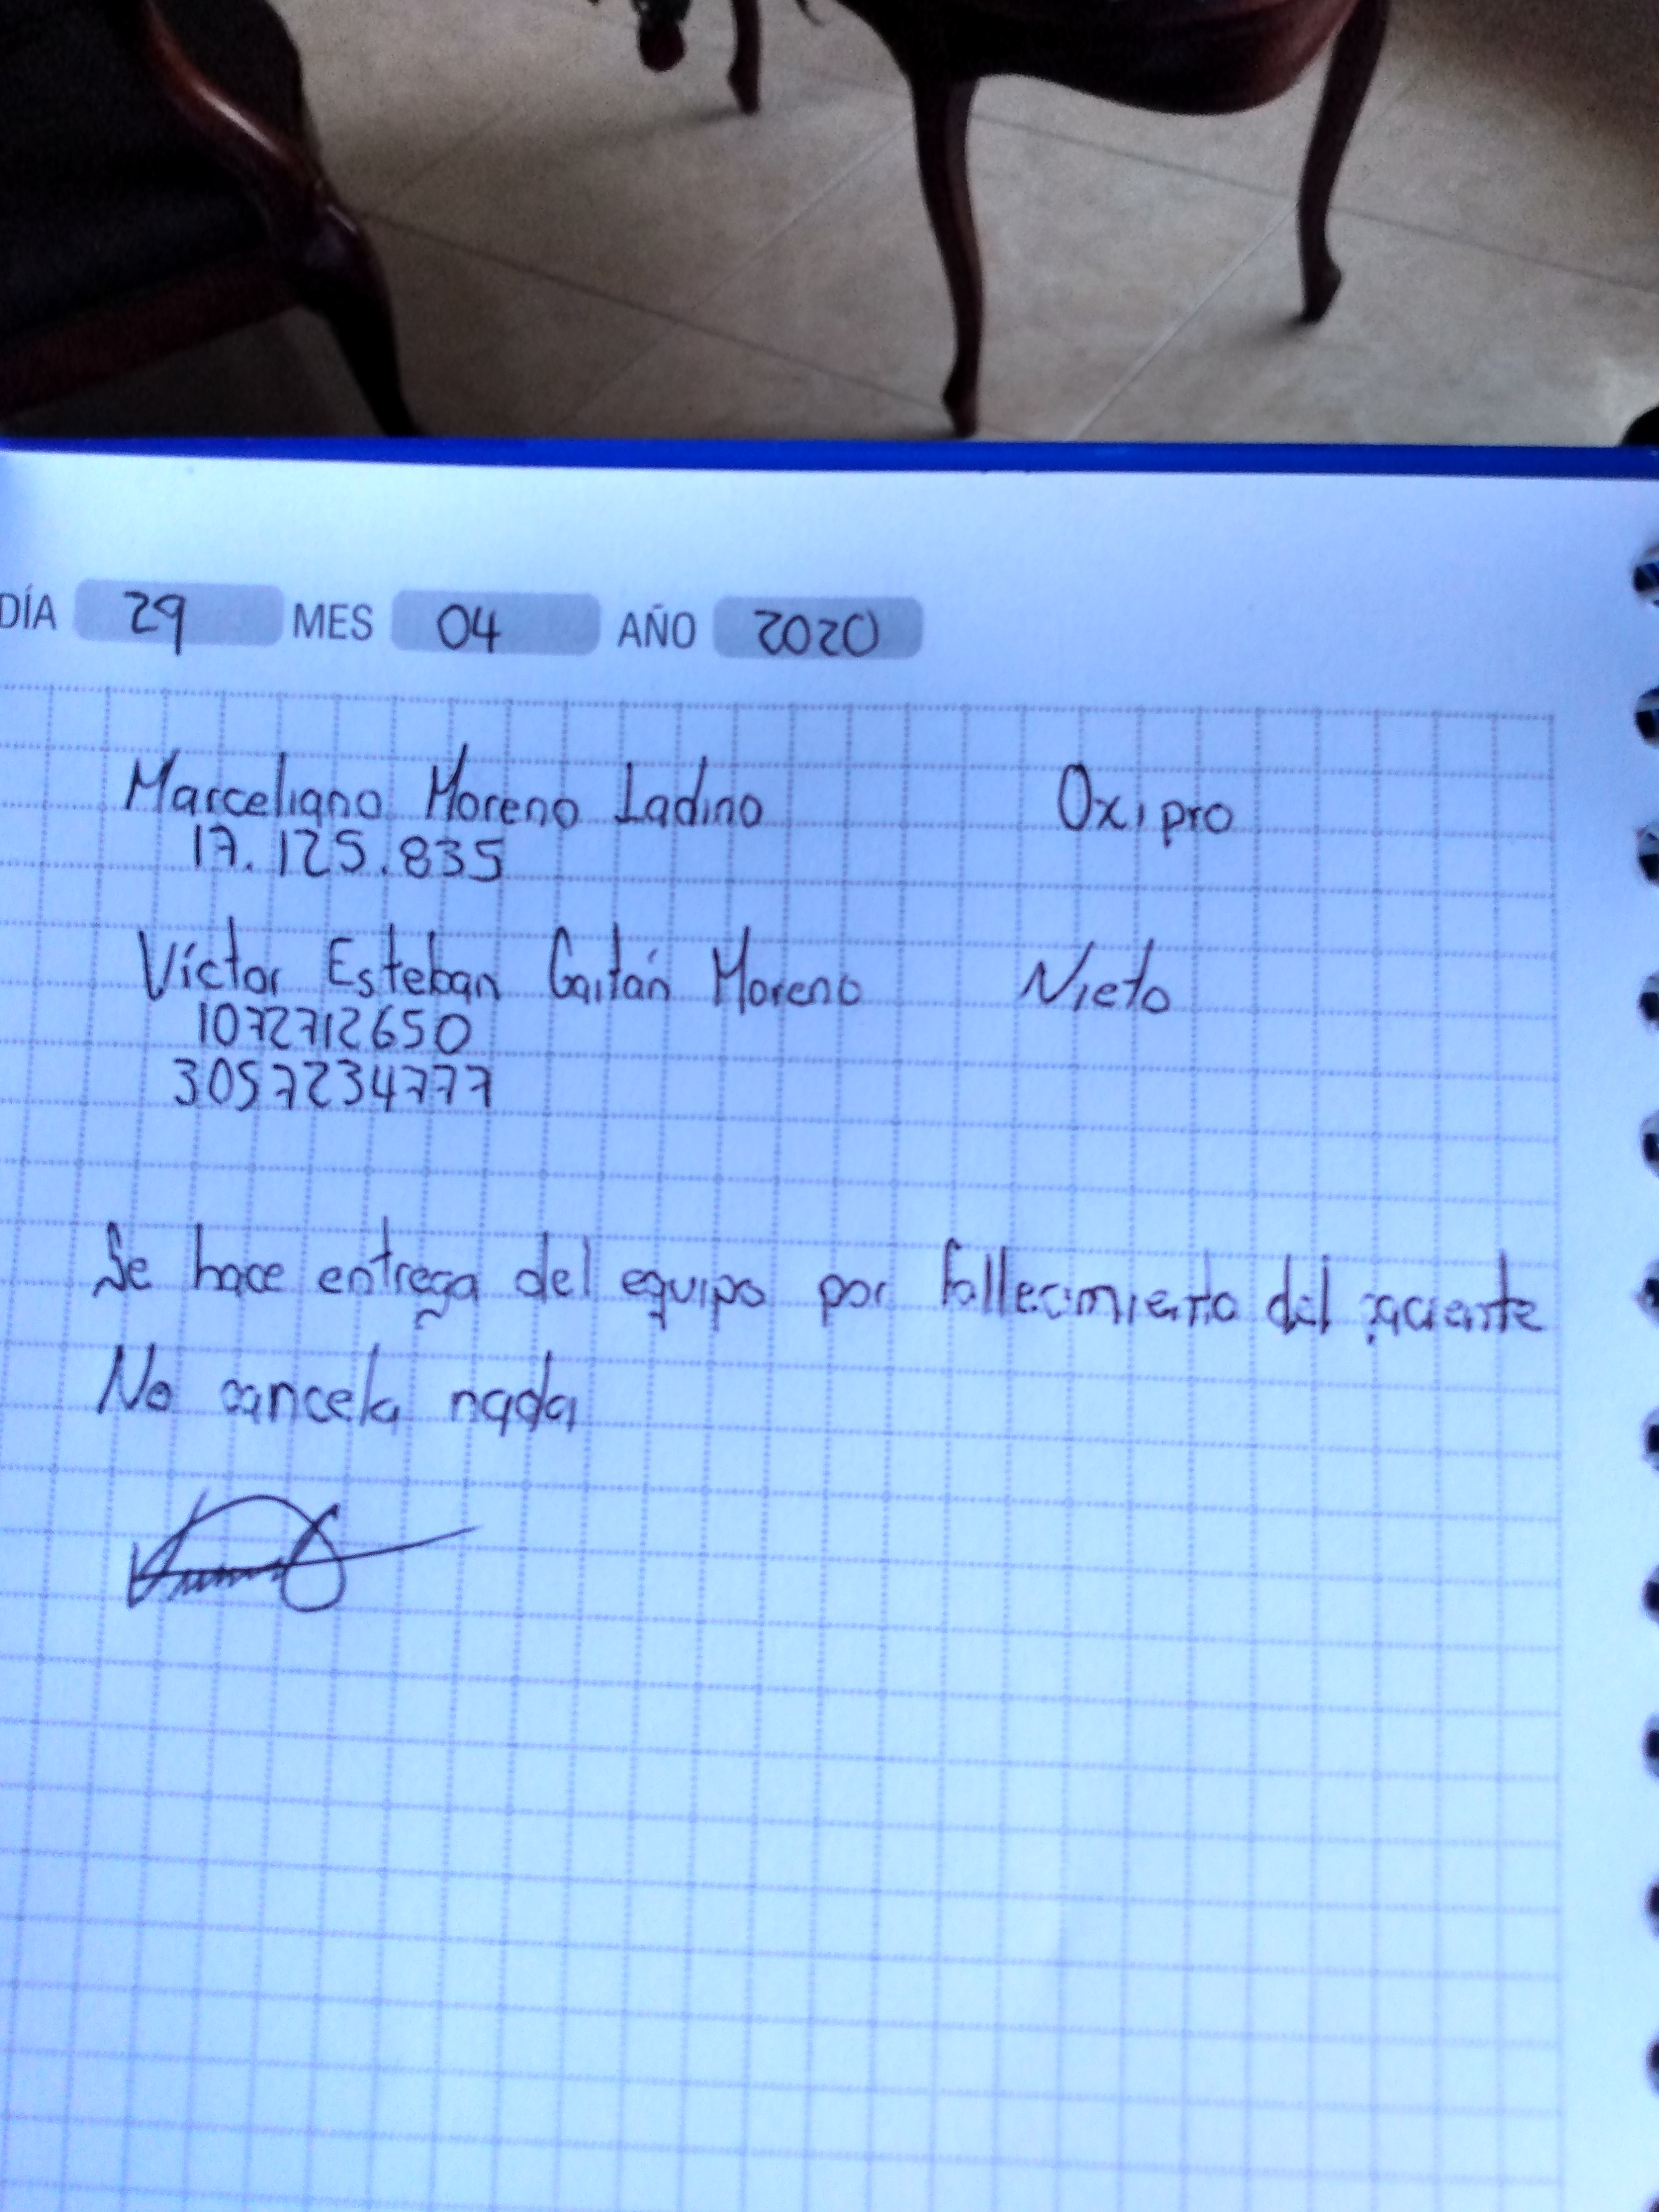 DÍA 29 MES 04 AÑO 2020
Marceliano Moreno Ladino Oxipro
17.125.835
Víctor Esteban Gaitán Moreno Nieto
1072712650
3057234777
Se hace entrega del equipo por fallecimiento del paciente
No cancela nada